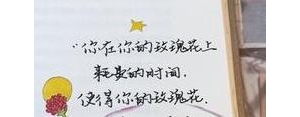 “你在你的玫瑰花上
耗费的时间,
使得你的玫瑰花.